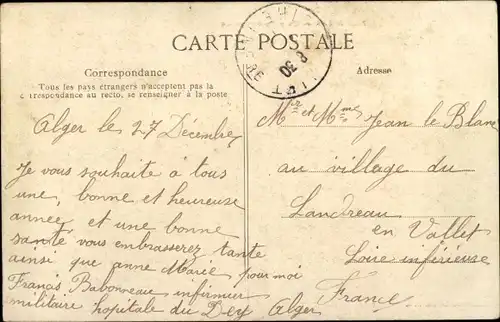 CARTE POSTALE
Correspondance
Tous les pays étrangers n'acceptent pas la
correspondance au recto. se renseigner à la poste
Alger les 27 Décembre
Je vous souhaite à tous
une, bonne et heureuse
année, et une bonne
santé vous embrasserez tante
ainsi que anne Marie pour moi
Francis Babonneau infirmier
militaire hopitale du Dey Alger
Adresse
Mr et Mme Jean le Blanc
au village du
Landreau
en Vallet
Loire inférieure
France
8 30